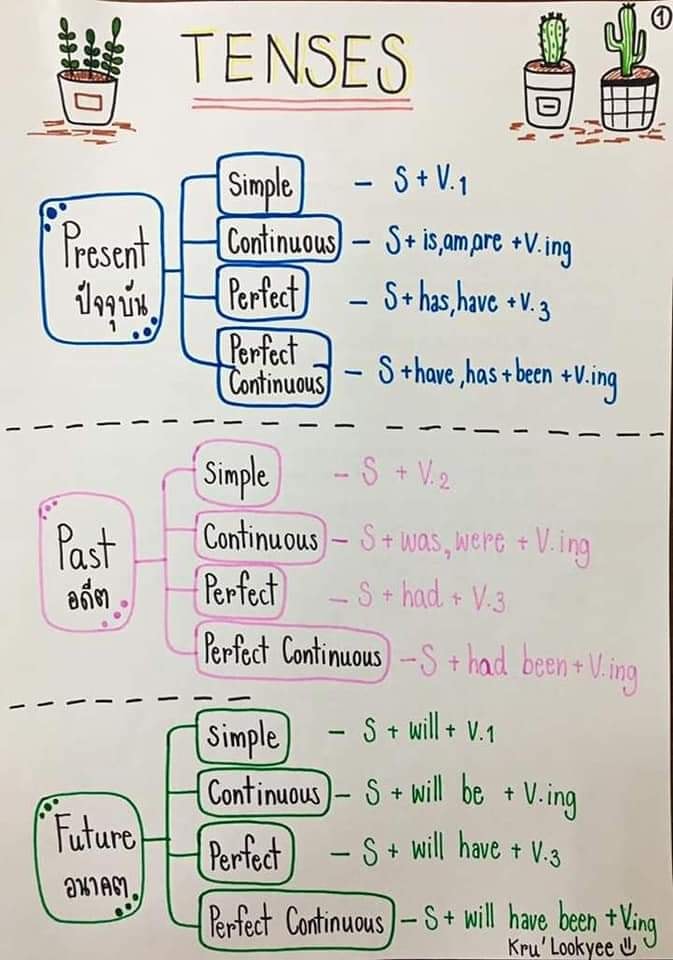 1
TENSES
Present
ปัจจุบัน
Simple - S + V.1
Continuous - S + is,am,are + V.ing
Perfect - S + has,have + V.3
Perfect
Continuous - S + have ,has + been + V.ing
Past
อดีต
Simple - S + V.2
Continuous - S + was, were + V.ing
Perfect - S + had + V.3
Perfect Continuous - S + had been + V.ing
Future
อนาคต
Simple - S + will + V.1
Continuous - S + will be + V.ing
Perfect - S + will have + V.3
Perfect Continuous - S + will have been + V.ing
Kru' Lookyee